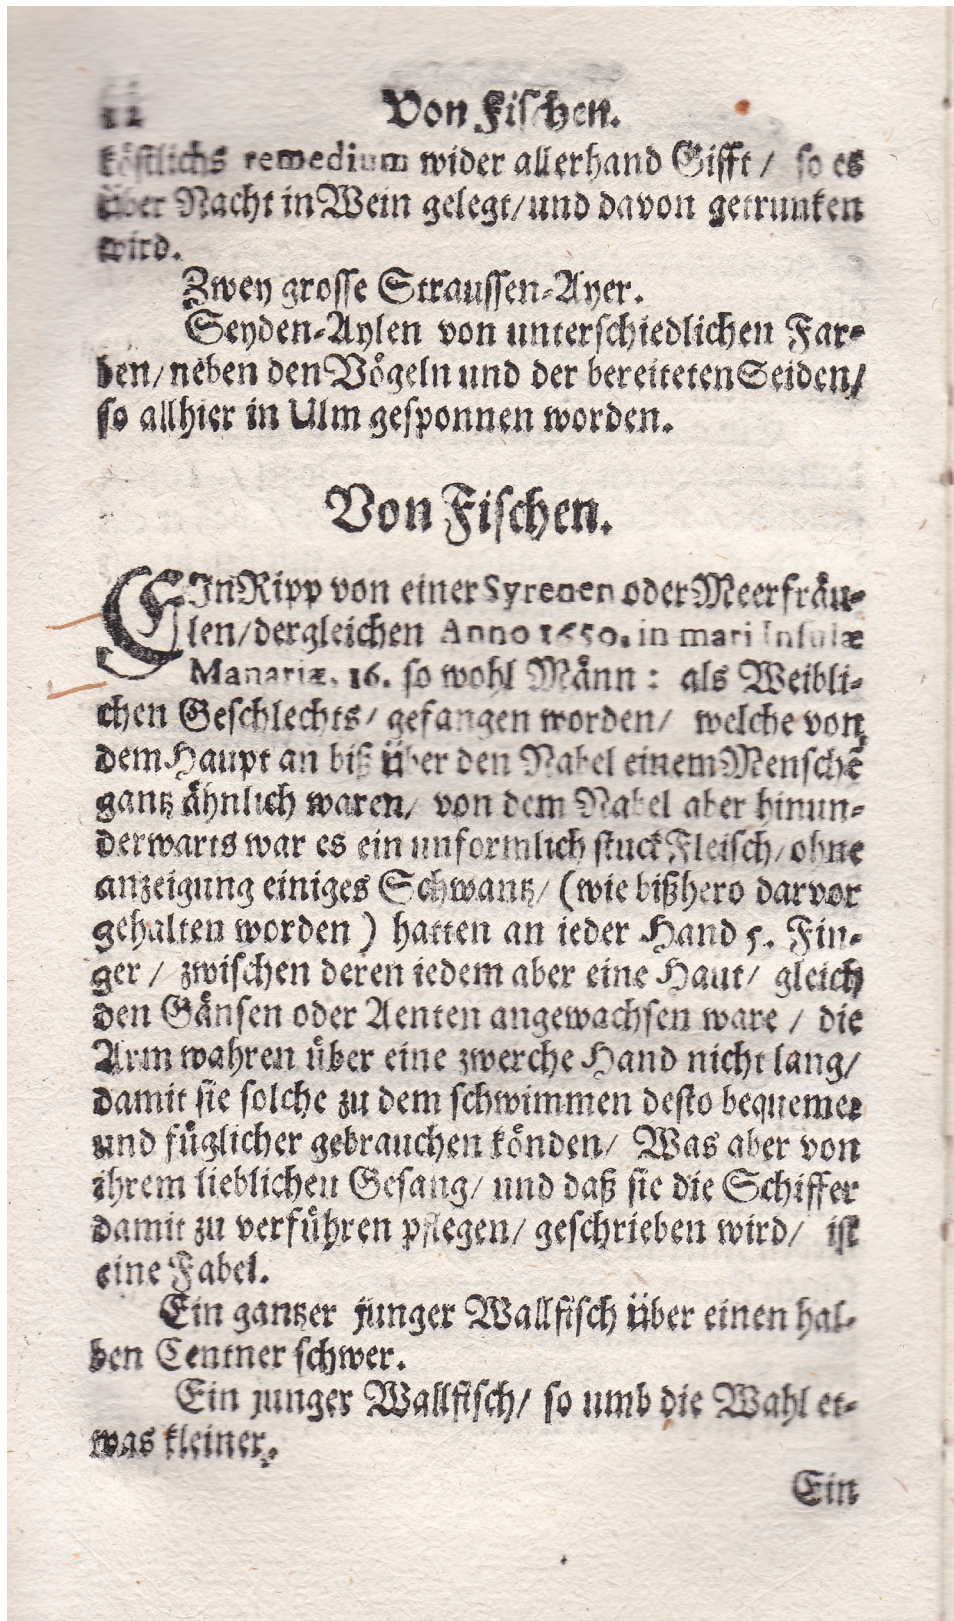 12 Von Fischen.
köstlichs remedium wider allerhand Gifft / so es
über Nacht in Wein gelegt/ und davon getrunken
wird.
Zwey grosse Straussen-Ayer.
Seyden-Aylen von unterschiedlichen Far-
ben/ neben den Vögeln und der bereiteten Seiden/
so allhier in Ulm gesponnen worden.
Von Fischen.
EIn Ripp von einer Syrenen oder Meerfräu-
len/ dergleichen Anno 1650. in mari Insulæ
Manariæ. 16. so wohl Männ: als Weibli-
chen Geschlechts/ gefangen worden/ welche von
dem Haupt an biß über den Nabel einem Menschē
gantz ähnlich waren/ von dem Nabel aber hinun-
derwarts war es ein unformlich stuck Fleisch/ ohne
anzeigung einiges Schwantz/ (wie bißhero darvor
gehalten worden) hatten an ieder Hand 5. Fin-
ger / zwischen deren iedem aber eine Haut/ gleich
den Gänsen oder Aenten angewachsen ware / die
Arm wahren über eine zwerche Hand nicht lang/
damit sie solche zu dem schwimmen desto bequemer
und füglicher gebrauchen könden/ Was aber von
ihrem lieblichen Gesang/ und daß sie die Schiffer
damit zu verführen pflegen/ geschrieben wird/ ist
eine Fabel.
Ein gantzer junger Wallfisch über einen hal-
ben Centner schwer.
Ein junger Wallfisch/ so umb die Wahl et-
was kleiner.
Ein